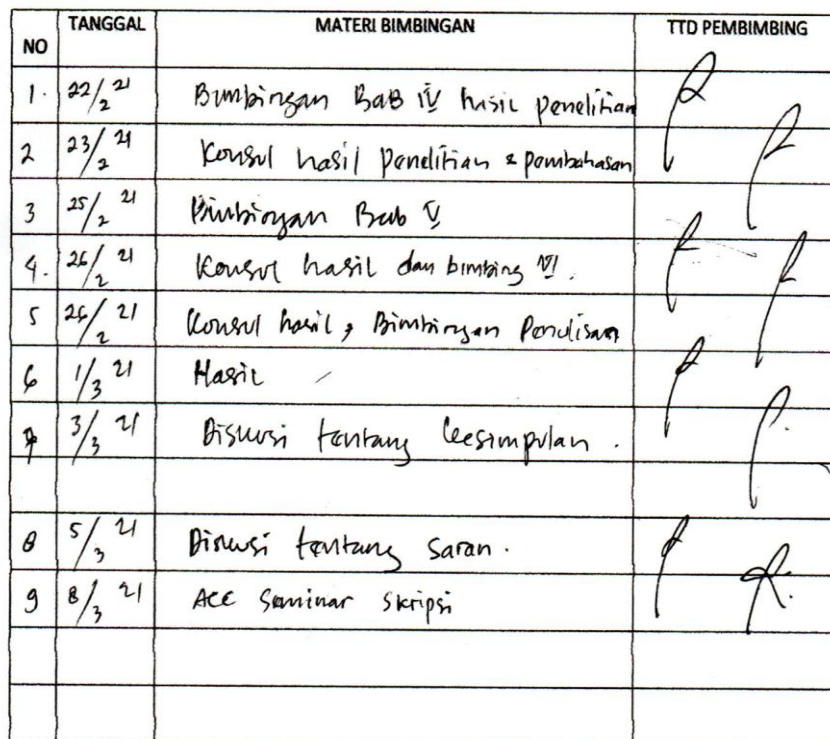 NO TANGGAL MATERI BIMBINGAN TTD PEMBIMBING
1. 22/2 21 Bimbingan Bab IV hasil penelitian
2 23/2 21 Konsul hasil penelitian & pembahasan
3 25/2 21 Bimbingan Bab V
4. 26/2 21 Konsul hasil dan bimbing VI.
5 26/2 21 Konsul hasil, Bimbingan Penulisan
6 1/3 21 Hasil
7 3/3 21 Diskusi tentang kesimpulan.
8 5/3 21 Diskusi tentang saran.
9 8/3 21 ACC Seminar Skripsi